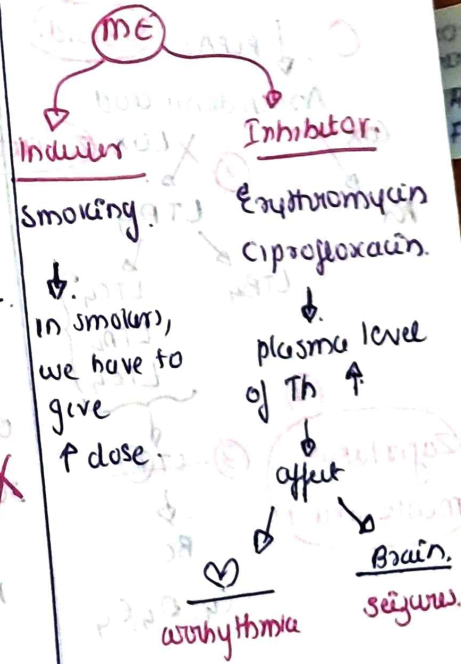 ME
Inducer
Smoking.
In smokers,
we have to
give
↑ dose.
Inhibitor.
Erythromycin
Ciprofloxacin.
plasma level
of Th ↑
affect
arrhythmia
Brain.
seizures.